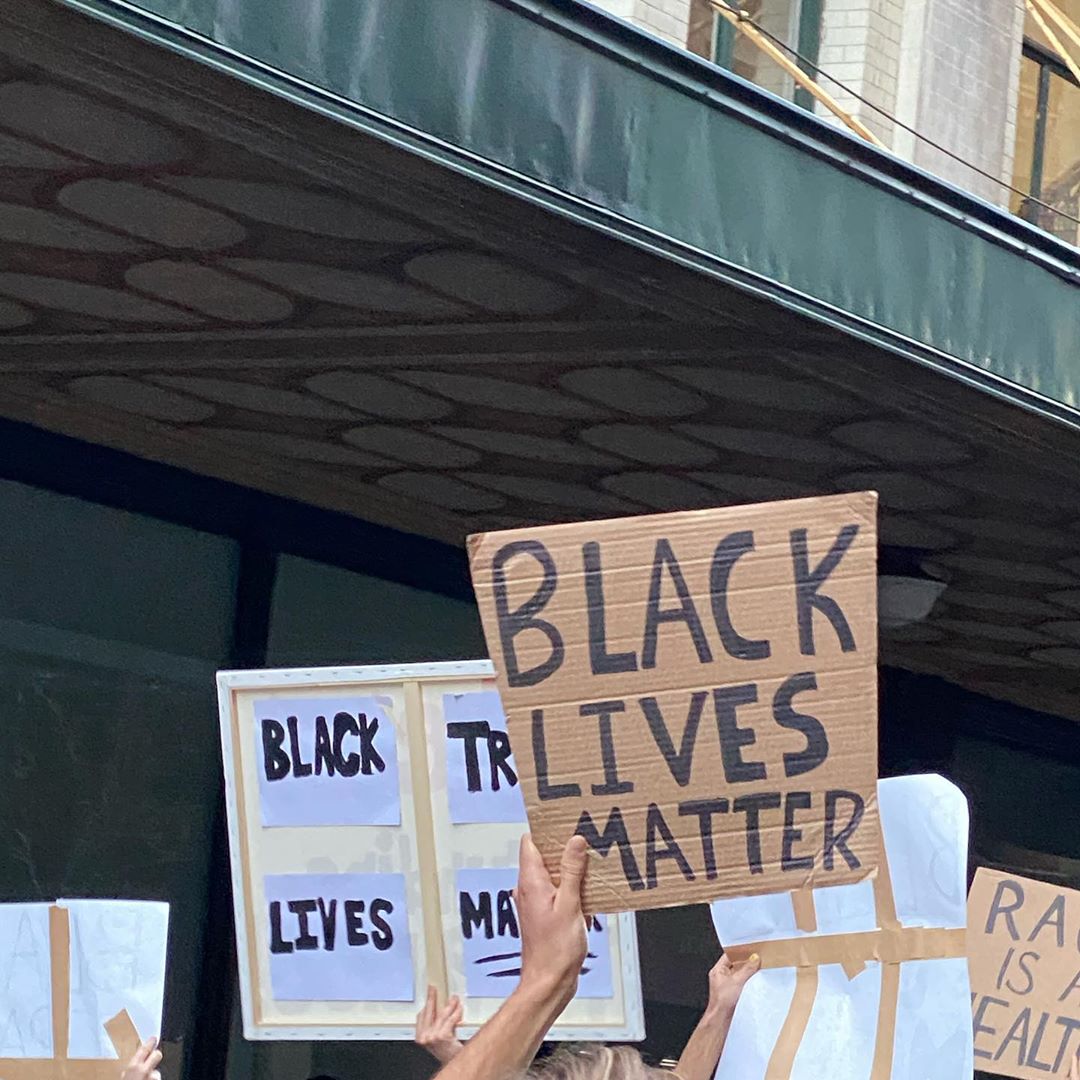 BLACK
LIVES
MATTER
BLACK TR
LIVES MA
RAC
IS A
HEALT